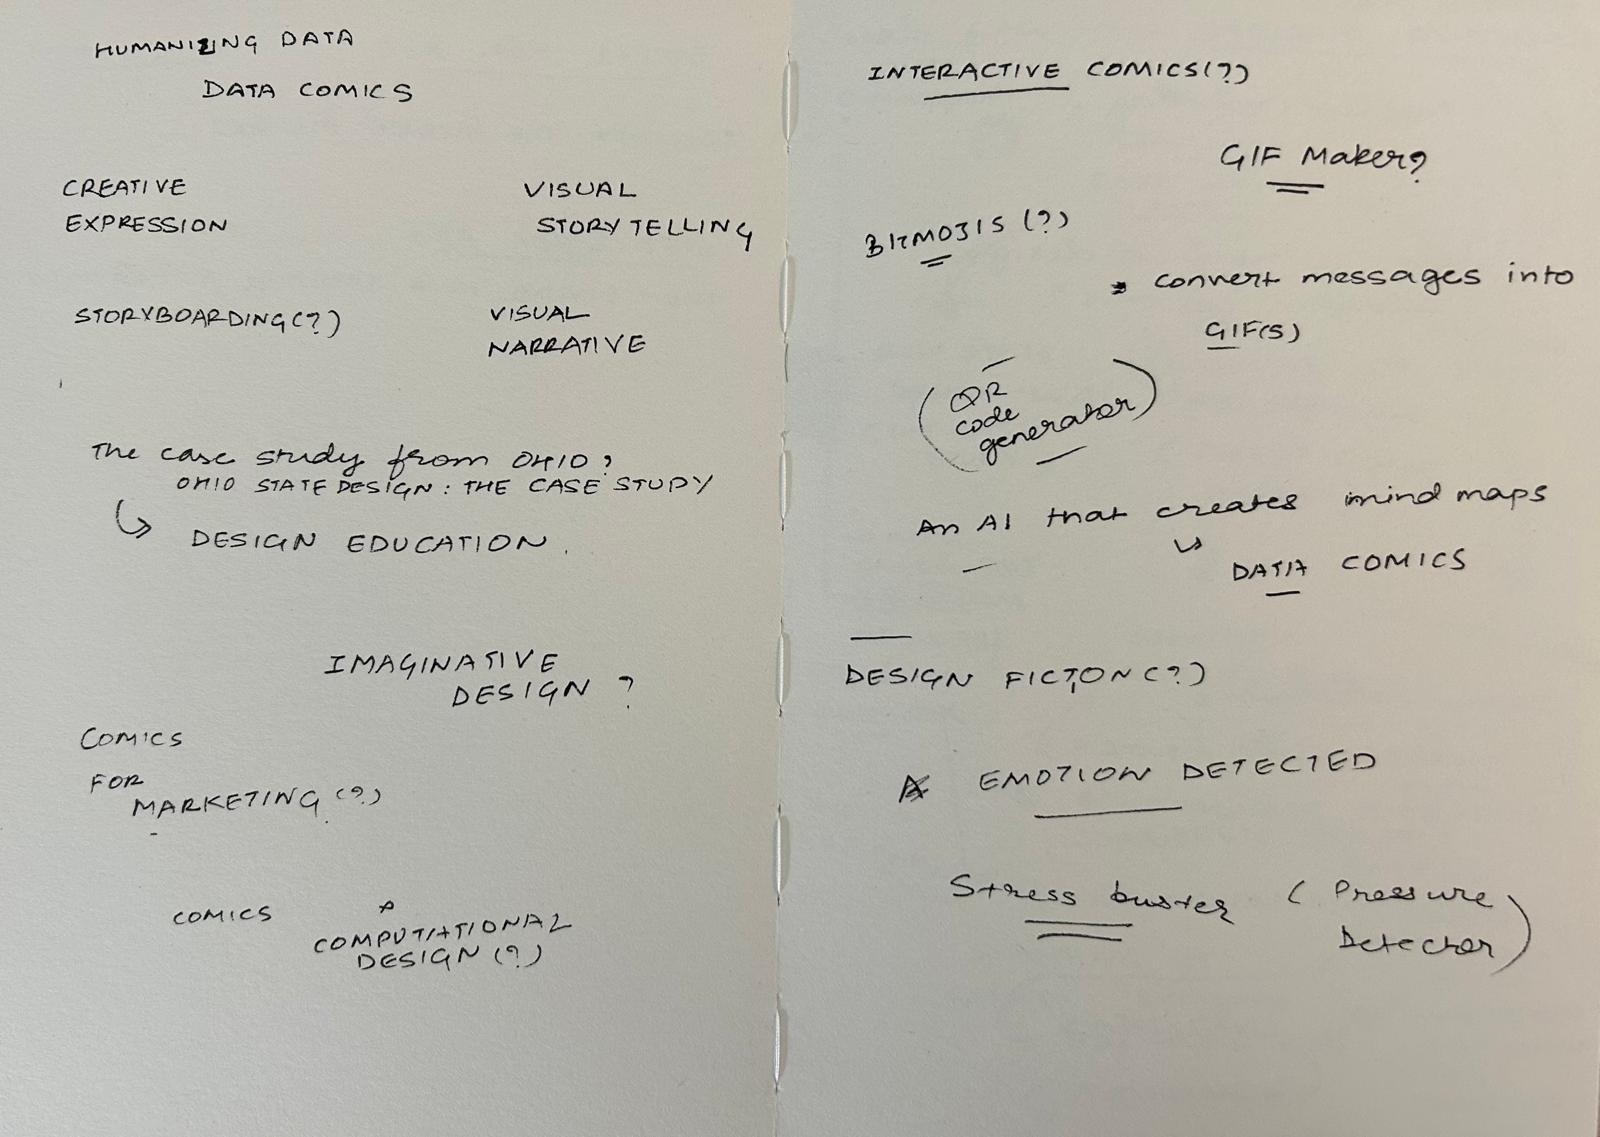 HUMANIZING DATA
DATA COMICS
CREATIVE
EXPRESSION
VISUAL
STORYTELLING
STORYBOARDING(?)
VISUAL
NARRATIVE
The case study from OHIO?
OHIO STATE DESIGN: THE CASE STUDY
DESIGN EDUCATION.
IMAGINATIVE
DESIGN ?
COMICS
FOR
MARKETING (?)
COMICS
COMPUTATIONAL
DESIGN (?)
INTERACTIVE COMICS(?)
GIF Maker?
BITMOJIS (?)
convert messages into
GIF(S)
(QR
code
generator)
An AI that creates mind maps
DATA COMICS
DESIGN FICTION(?)
EMOTION DETECTED
Stress buster (Pressure
Detector)